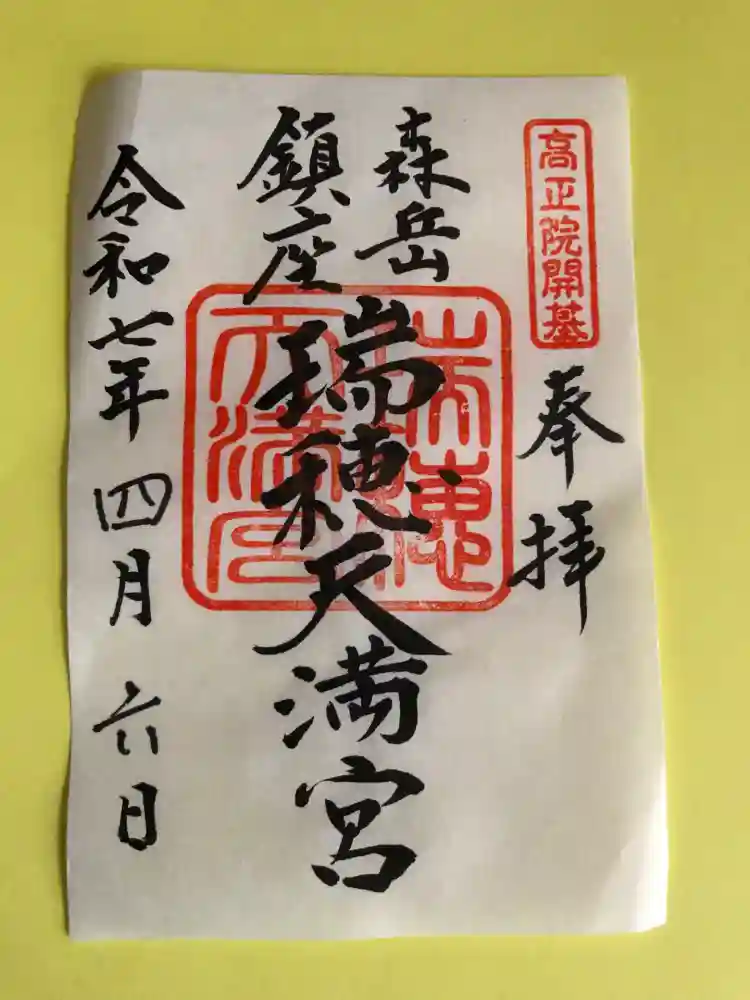 高正院開基
奉拝
森岳
鎮座
瑞穂天満宮
瑞穂
天満宮
令和七年四月六日